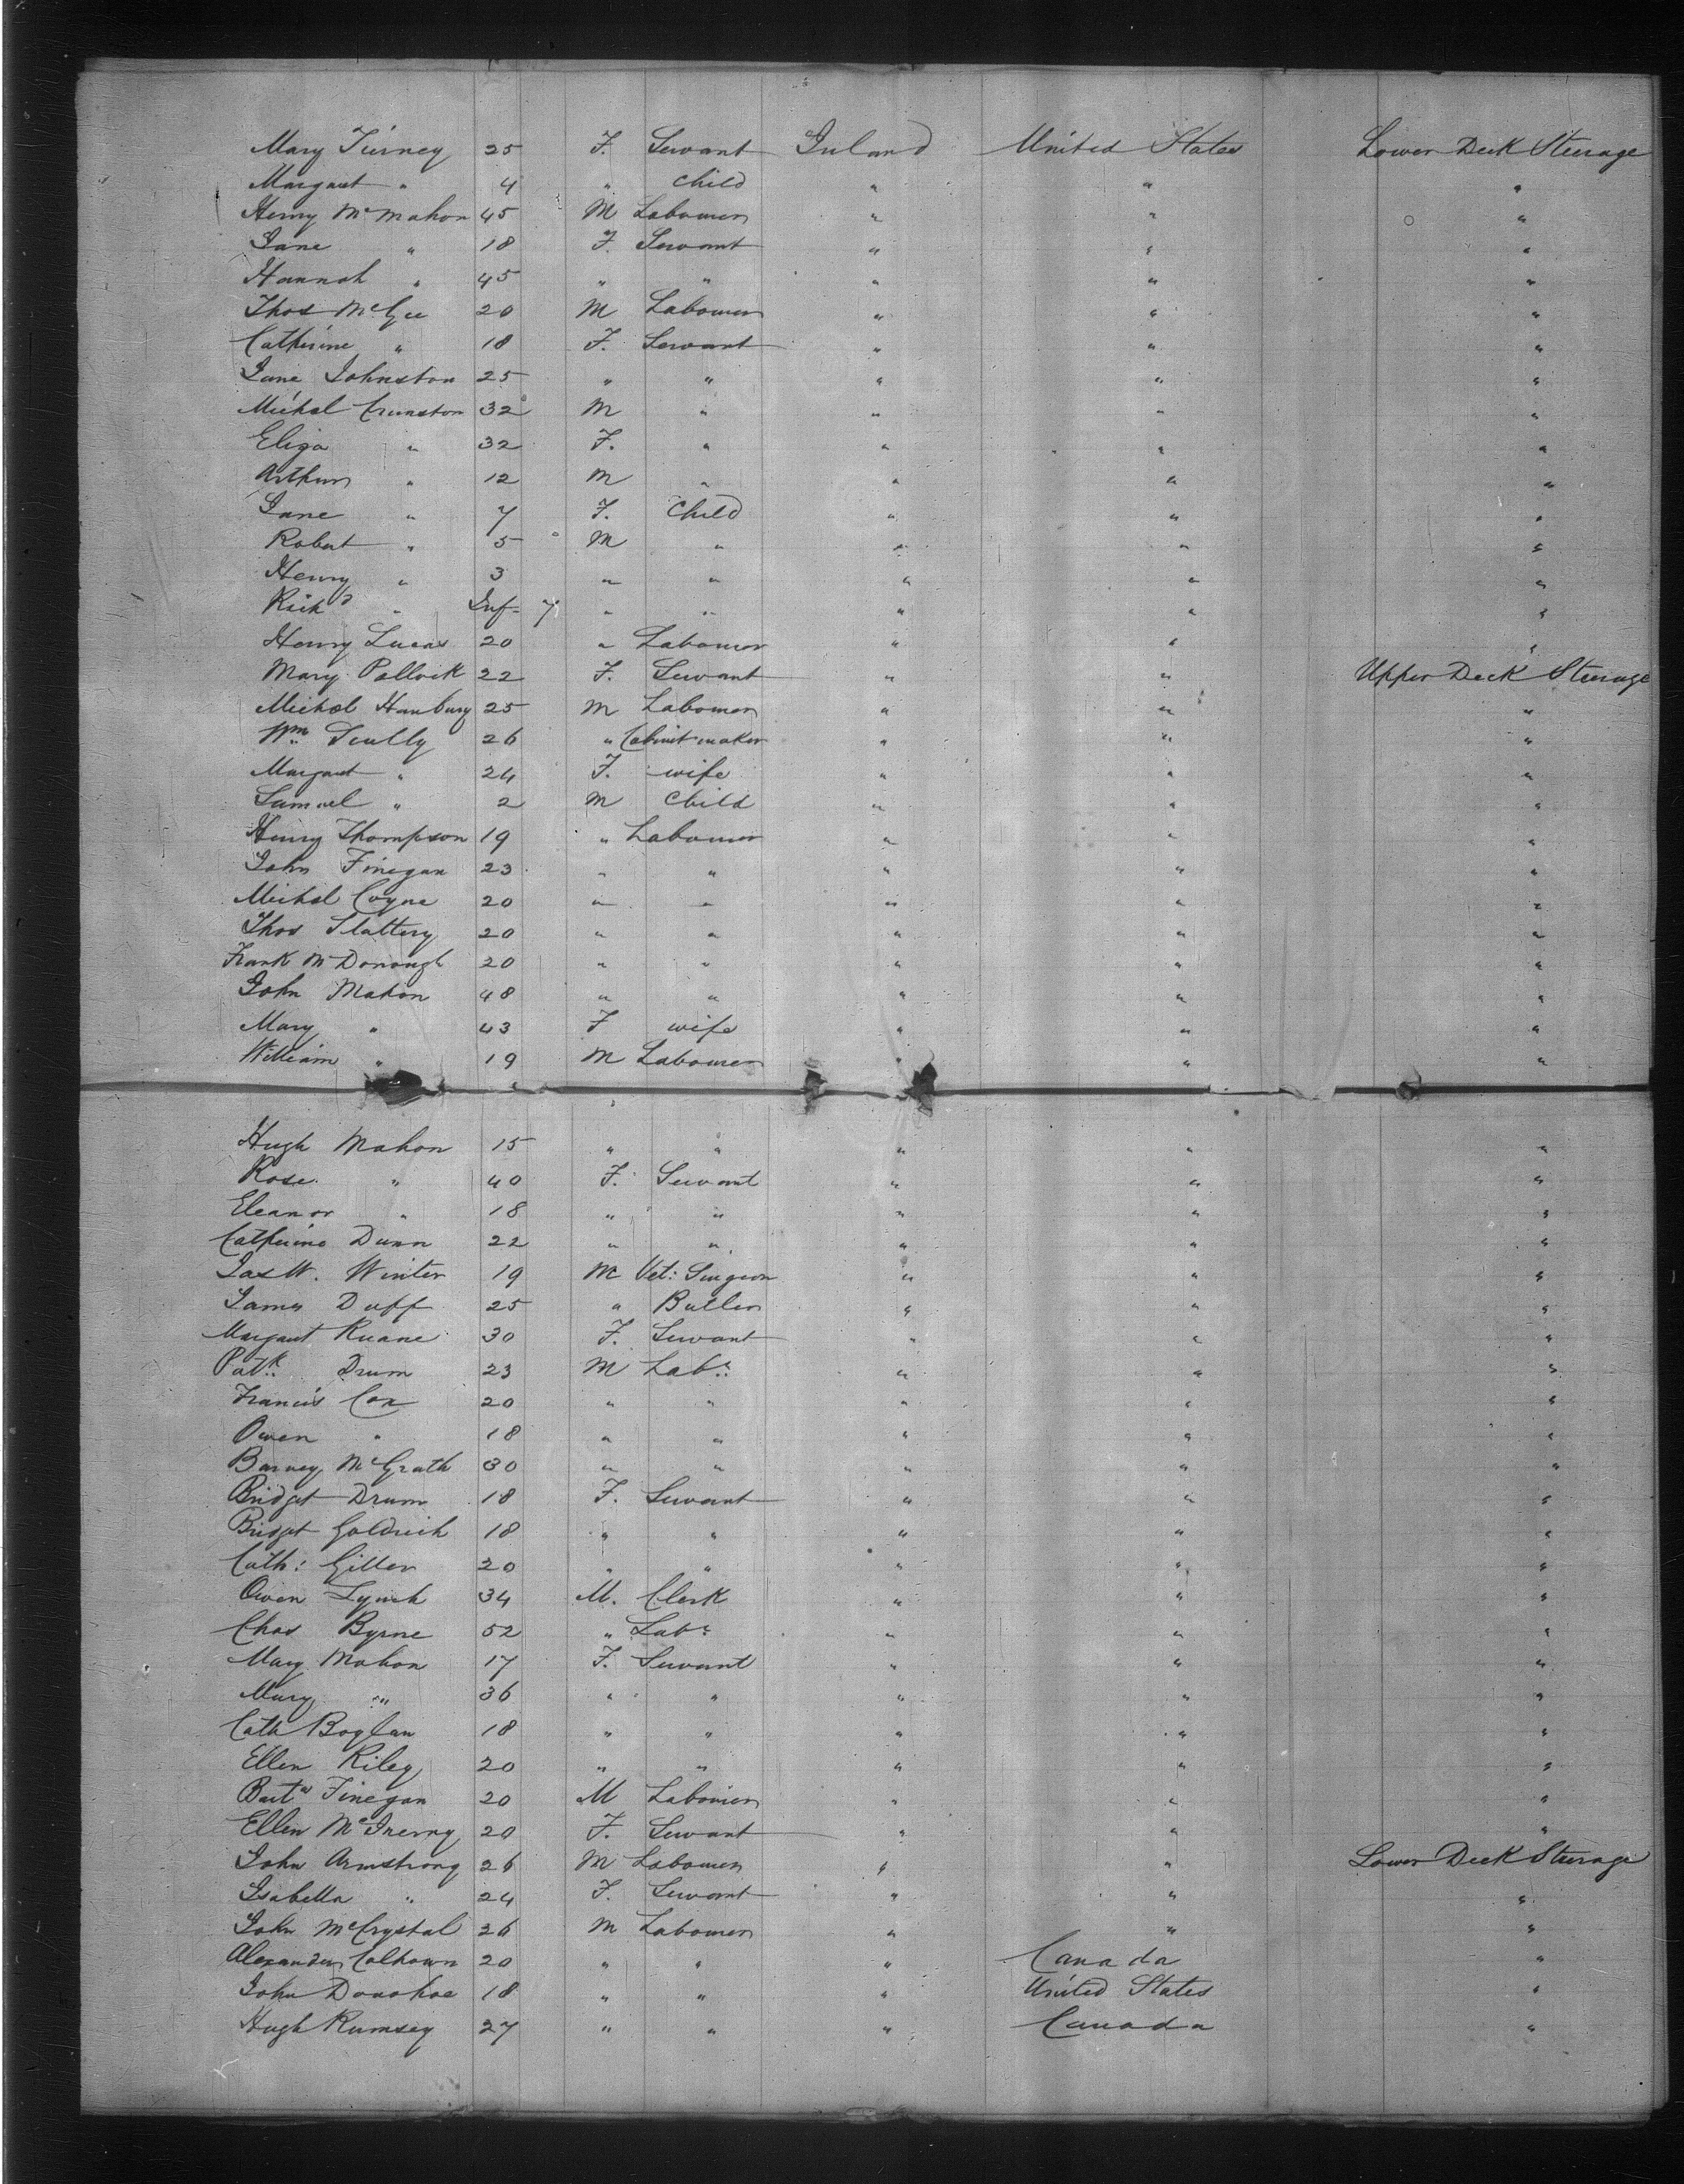 Mary Tierney 25 F. Servant Ireland United States Lower Deck Steerage
Margaret " 4 " Child " " "
Henry McMahon 45 M Labourer " " "
Jane " 18 F. Servant " " "
Hannah " 45 " " " " "
Thos McGee 20 M Labourer " " "
Catherine " 18 F. Servant " " "
Jane Johnston 25 " " " " "
Michal Crunston 32 M " " " "
Eliza " 32 F. " " " "
Arthur " 12 M " " " "
Jane " 7 F. Child " " "
Robert " 5 M " " " "
Henry " 3 " " " " "
Rich'd " Inf- 7 " " " " "
Henry Lucas 20 " Labourer " " "
Mary Pollock 22 F. Servant " " Upper Deck Steerage
Michal Hanbury 25 M Labourer " " "
Wm Scully 26 " Cabinet maker " " "
Margaret " 24 F. wife " " "
Samuel " 2 M Child " " "
Henry Thompson 19 " Labourer " " "
John Finegan 23 " " " " "
Michal Coyne 20 " " " " "
Thos Slattery 20 " " " " "
Frank McDonough 20 " " " " "
John Mahon 48 " " " " "
Mary " 43 F wife " " "
William " 19 M Labourer " " "
Hugh Mahon 15 " " " " "
Rose " 40 F. Servant " " "
Eleanor " 18 " " " " "
Catherine Dunn 22 " " " " "
Jas W. Winter 19 M Vet: Surgeon " " "
James Duff 25 " Butler " " "
Margaret Ruane 30 F. Servant " " "
Patk Drum 23 M Labr " " "
Francis Cox 20 " " " " "
Owen " 18 " " " " "
Barney McGrath 30 " " " " "
Bridget Drum 18 F. Servant " " "
Bridget Goldrich 18 " " " " "
Cath: 20 " " " " "
Owen Lynch 34 M. Clerk " " "
Chas Byrne 52 " Labr " " "
Mary Mahon 17 F. Servant " " "
Mary " 36 " " " " "
Cath 18 " " " " "
Ellen Riley 20 " " " " "
Bartw Finegan 20 M Labourer " " "
Ellen McInerny 20 F. Servant " " "
John Armstrong 26 M Labourer " " Lower Deck Steerage
Isabella " 24 F. Servant " " "
John McCrystal 26 M Labourer " " "
Alexander Colhoun 20 " " " Canada "
John Donohoe 18 " " " United States "
Hugh Rumsey 27 " " " Canada "